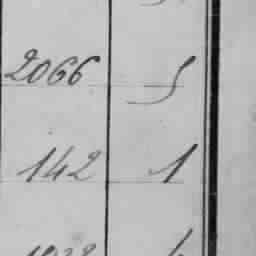 2066 5
142 1